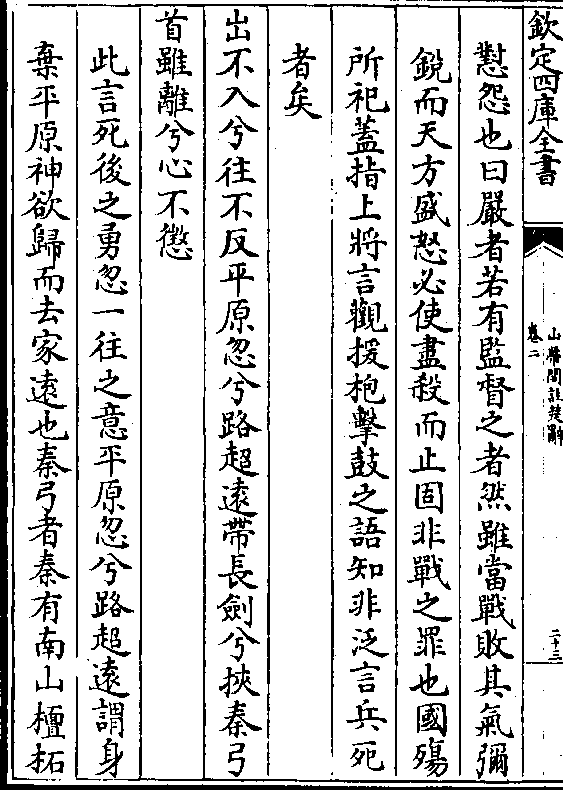 欽定四庫全書
山帶閣註楚辭
卷二
二十三
懟怨也曰嚴者若有監督之者然雖當戰敗其氣彌
銳而天方盛怒必使盡殺而止固非戰之罪也國殤
所祀蓋指上將言觀援枹擊鼓之語知非泛言兵死
者矣
出不入兮往不反平原忽兮路超遠帶長劍兮挾秦弓
首雖離兮心不懲
此言死後之勇忽一往之意平原忽兮路超遠謂身
棄平原神欲歸而去家遠也秦弓者秦有南山檀柘